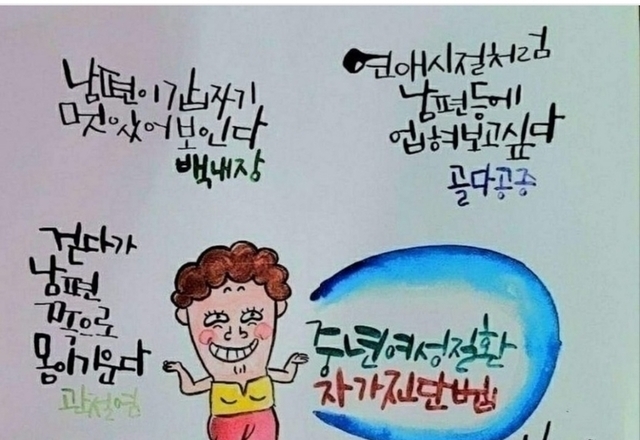 남편이 갑자기
멋있어 보인다
백내장
연애시절처럼
남편등에
업혀보고싶다
골다공증
걷다가
남편
쪽으로
몸이 기운다
관절염
중년여성질환
자가진단법